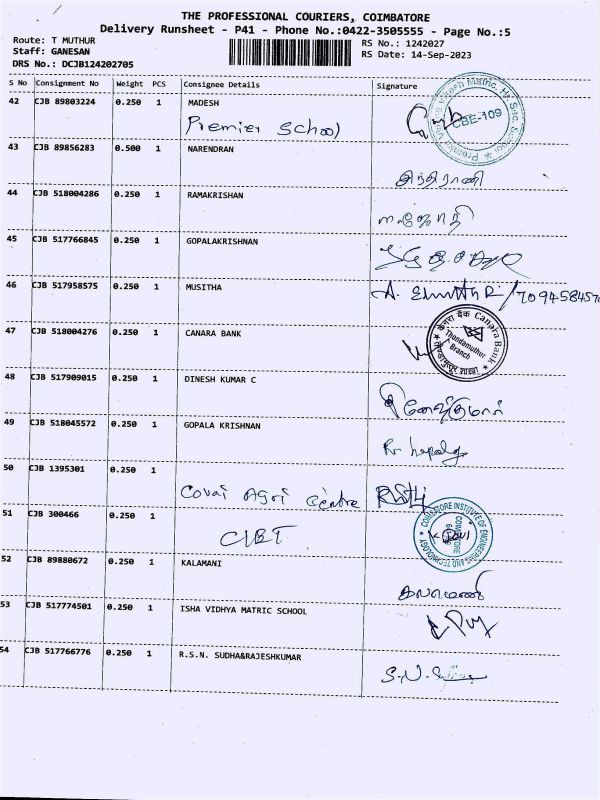 THE PROFESSIONAL COURIERS, COIMBATORE
Delivery Runsheet - P41 - Phone No.:0422-3505555 - Page No.:5
Route: T MUTHUR RS No.: 1242027
Staff: GANESAN RS Date: 14-Sep-2023
DRS No.: DCJB124202705
S No Consignment No Weight PCS Consignee Details Signature
42 CJB 89803224 0.250 1 MADESH
Premier School
CBE-109
43 CJB 89856283 0.500 1 NARENDRAN
இந்திராணி
44 CJB 518004286 0.250 1 RAMAKRISHAN
45 CJB 517766845 0.250 1 GOPALAKRISHNAN
46 CJB 517958575 0.250 1 MUSITHA
47 CJB 518004276 0.250 1 CANARA BANK
केनरा बैंक Canara Bank
Thondamuthur
Branch
48 CJB 517909015 0.250 1 DINESH KUMAR C
49 CJB 518045572 0.250 1 GOPALA KRISHNAN
50 CJB 1395301 0.250 1
Covai Agri Centre
51 CJB 300466 0.250 1
CIET
COIMBATORE INSTITUTE OF ENGINEERING AND TECHNOLOGY
52 CJB 89880672 0.250 1 KALAMANI
கலாமணி
53 CJB 517774501 0.250 1 ISHA VIDHYA MATRIC SCHOOL
54 CJB 517766776 0.250 1 R.S.N. SUDHA&RAJESHKUMAR